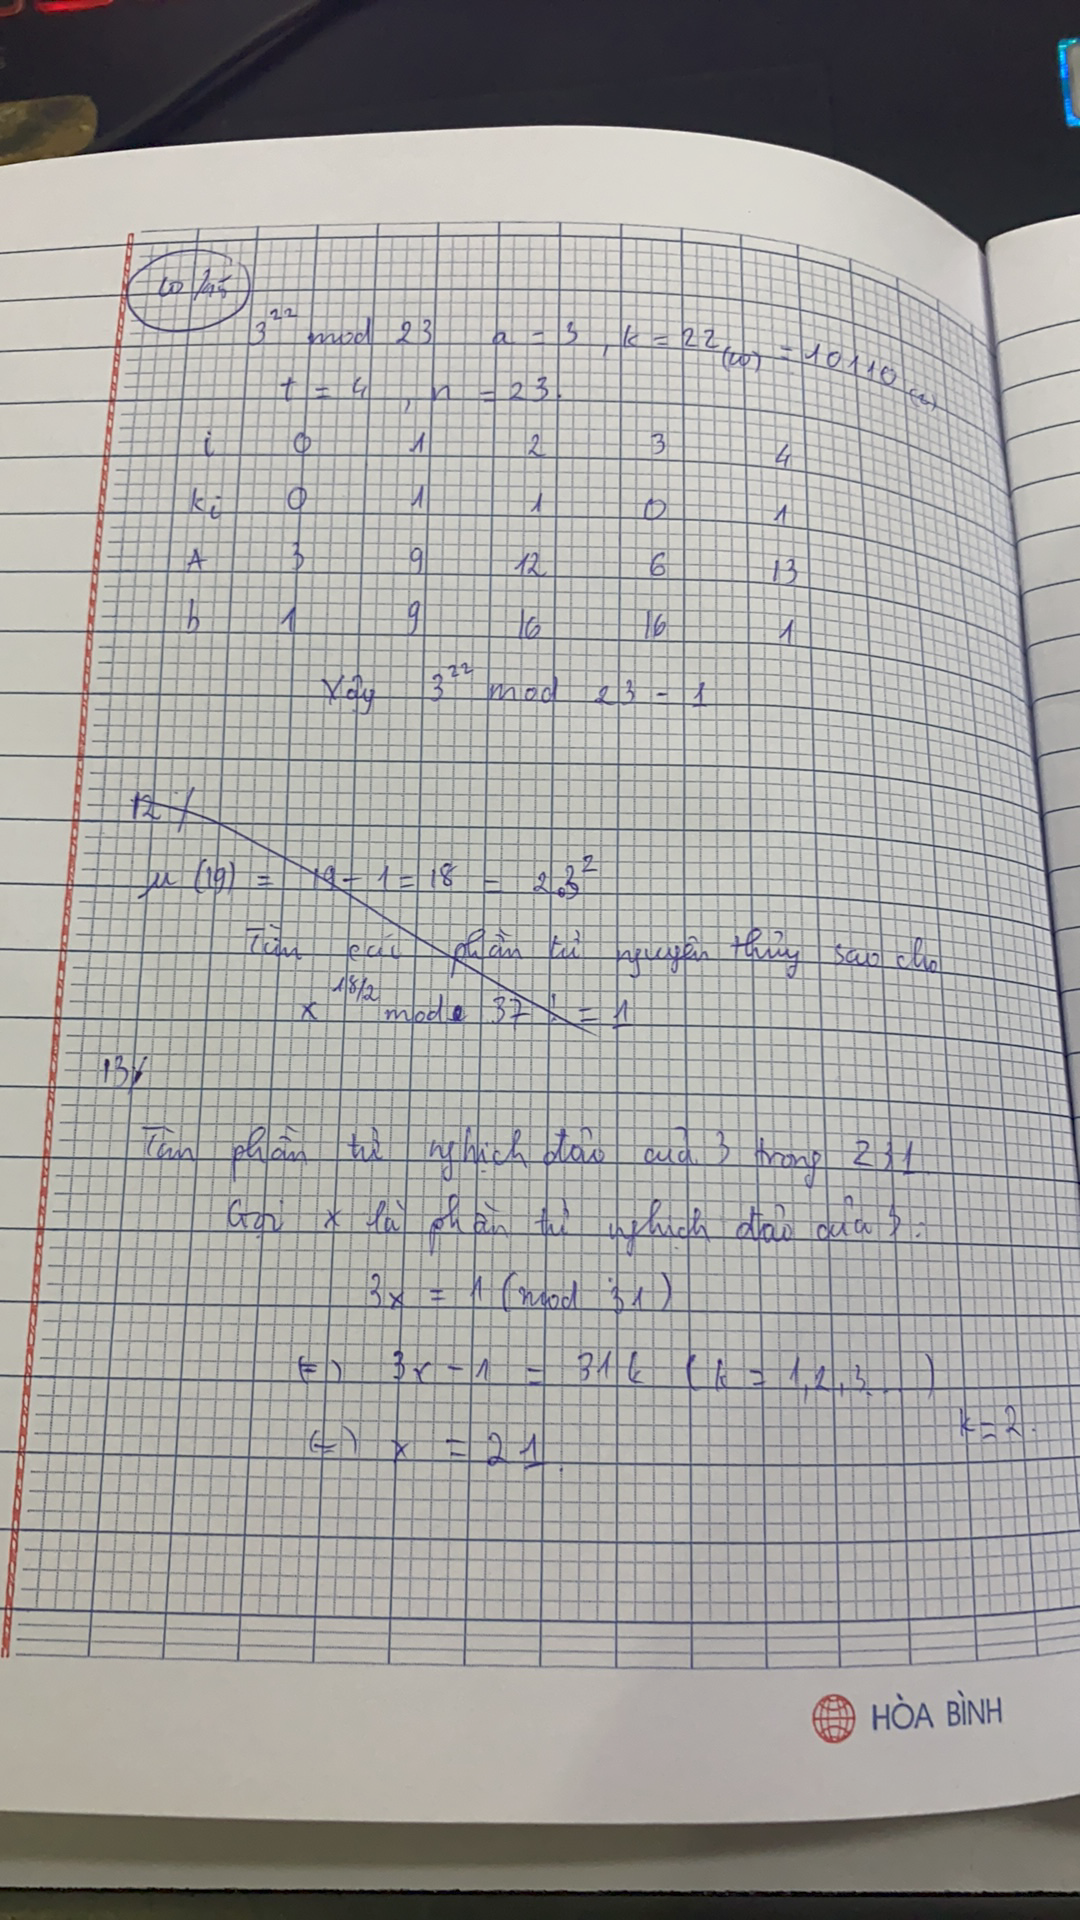 3^22 mod 23 a = 3 , k = 22(10) = 10110(2)
t = 4 , n = 23.
i 0 1 2 3 4
ki 0 1 1 0 1
A 3 9 12 6 13
b 1 9 16 16 1
Vậy 3^22 mod 23 = 1
12/
μ (19) = 19 - 1 = 18 = 2.3^2
Tìm các phần tử nguyên thủy sao cho
x^18/2 mod 37 != 1
13/
Tìm phần tử nghịch đảo của 3 trong Z31
Gọi x là phần tử nghịch đảo của 3.
3x = 1 (mod 31)
(=) 3x - 1 = 31k (k = 1,2,3...)
k = 2.
(=) x = 21.
HÒA BÌNH